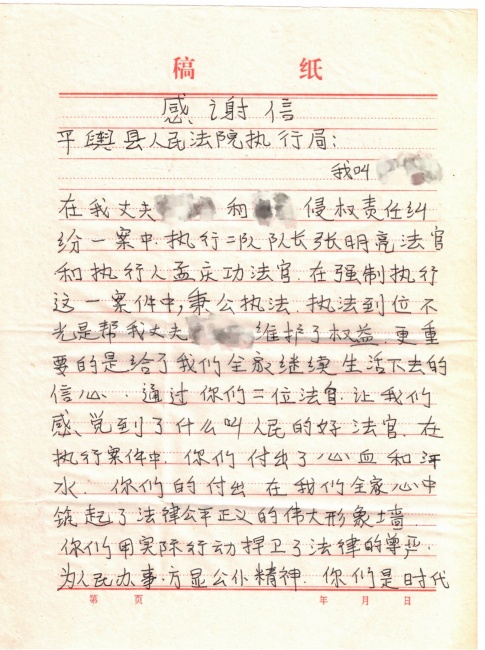 稿 纸
感谢信
平舆县人民法院执行局:
我叫
在我丈夫 和 侵权责任纠
纷一案中.执行二队队长张明亮法官
和执行人孟庆功法官.在强制执行
这一案件中,秉公执法.执法到位不
光是帮我丈夫 维护了权益.更重
要的是给了我们全家继续生活下去的
信心.通过你们二位法官.让我们
感觉到了什么叫人民的好法官.在
执行案件中.你们付出了心血和汗
水.你们的付出在我们全家心中
筑起了法律公平正义的伟大形象墙.
你们用实际行动捍卫了法律的尊严.
为人民办事.方显公仆精神.你们是时代
第 页 年 月 日